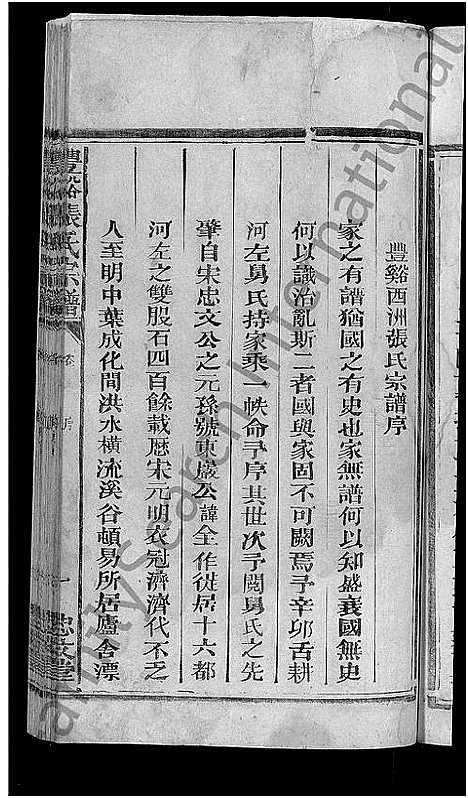 豐谿西洲張氏宗譜序
家之有譜猶國之有史也家無譜何以知盛衰國無史
何以識治亂斯二者國與家固不可闕焉予辛卯舌耕
河左舅氏持家乘一帙命予序其世次予閱舅氏之先
肇自宋忠文公之元孫號東巖公諱全作徙居十六都
河左之雙股石四百餘載歷宋元明衣冠濟濟代不乏
人至明中葉成化間洪水橫流溪谷頓易所居廬舍漂
豐谿張氏宗譜
卷
一
忠文堂